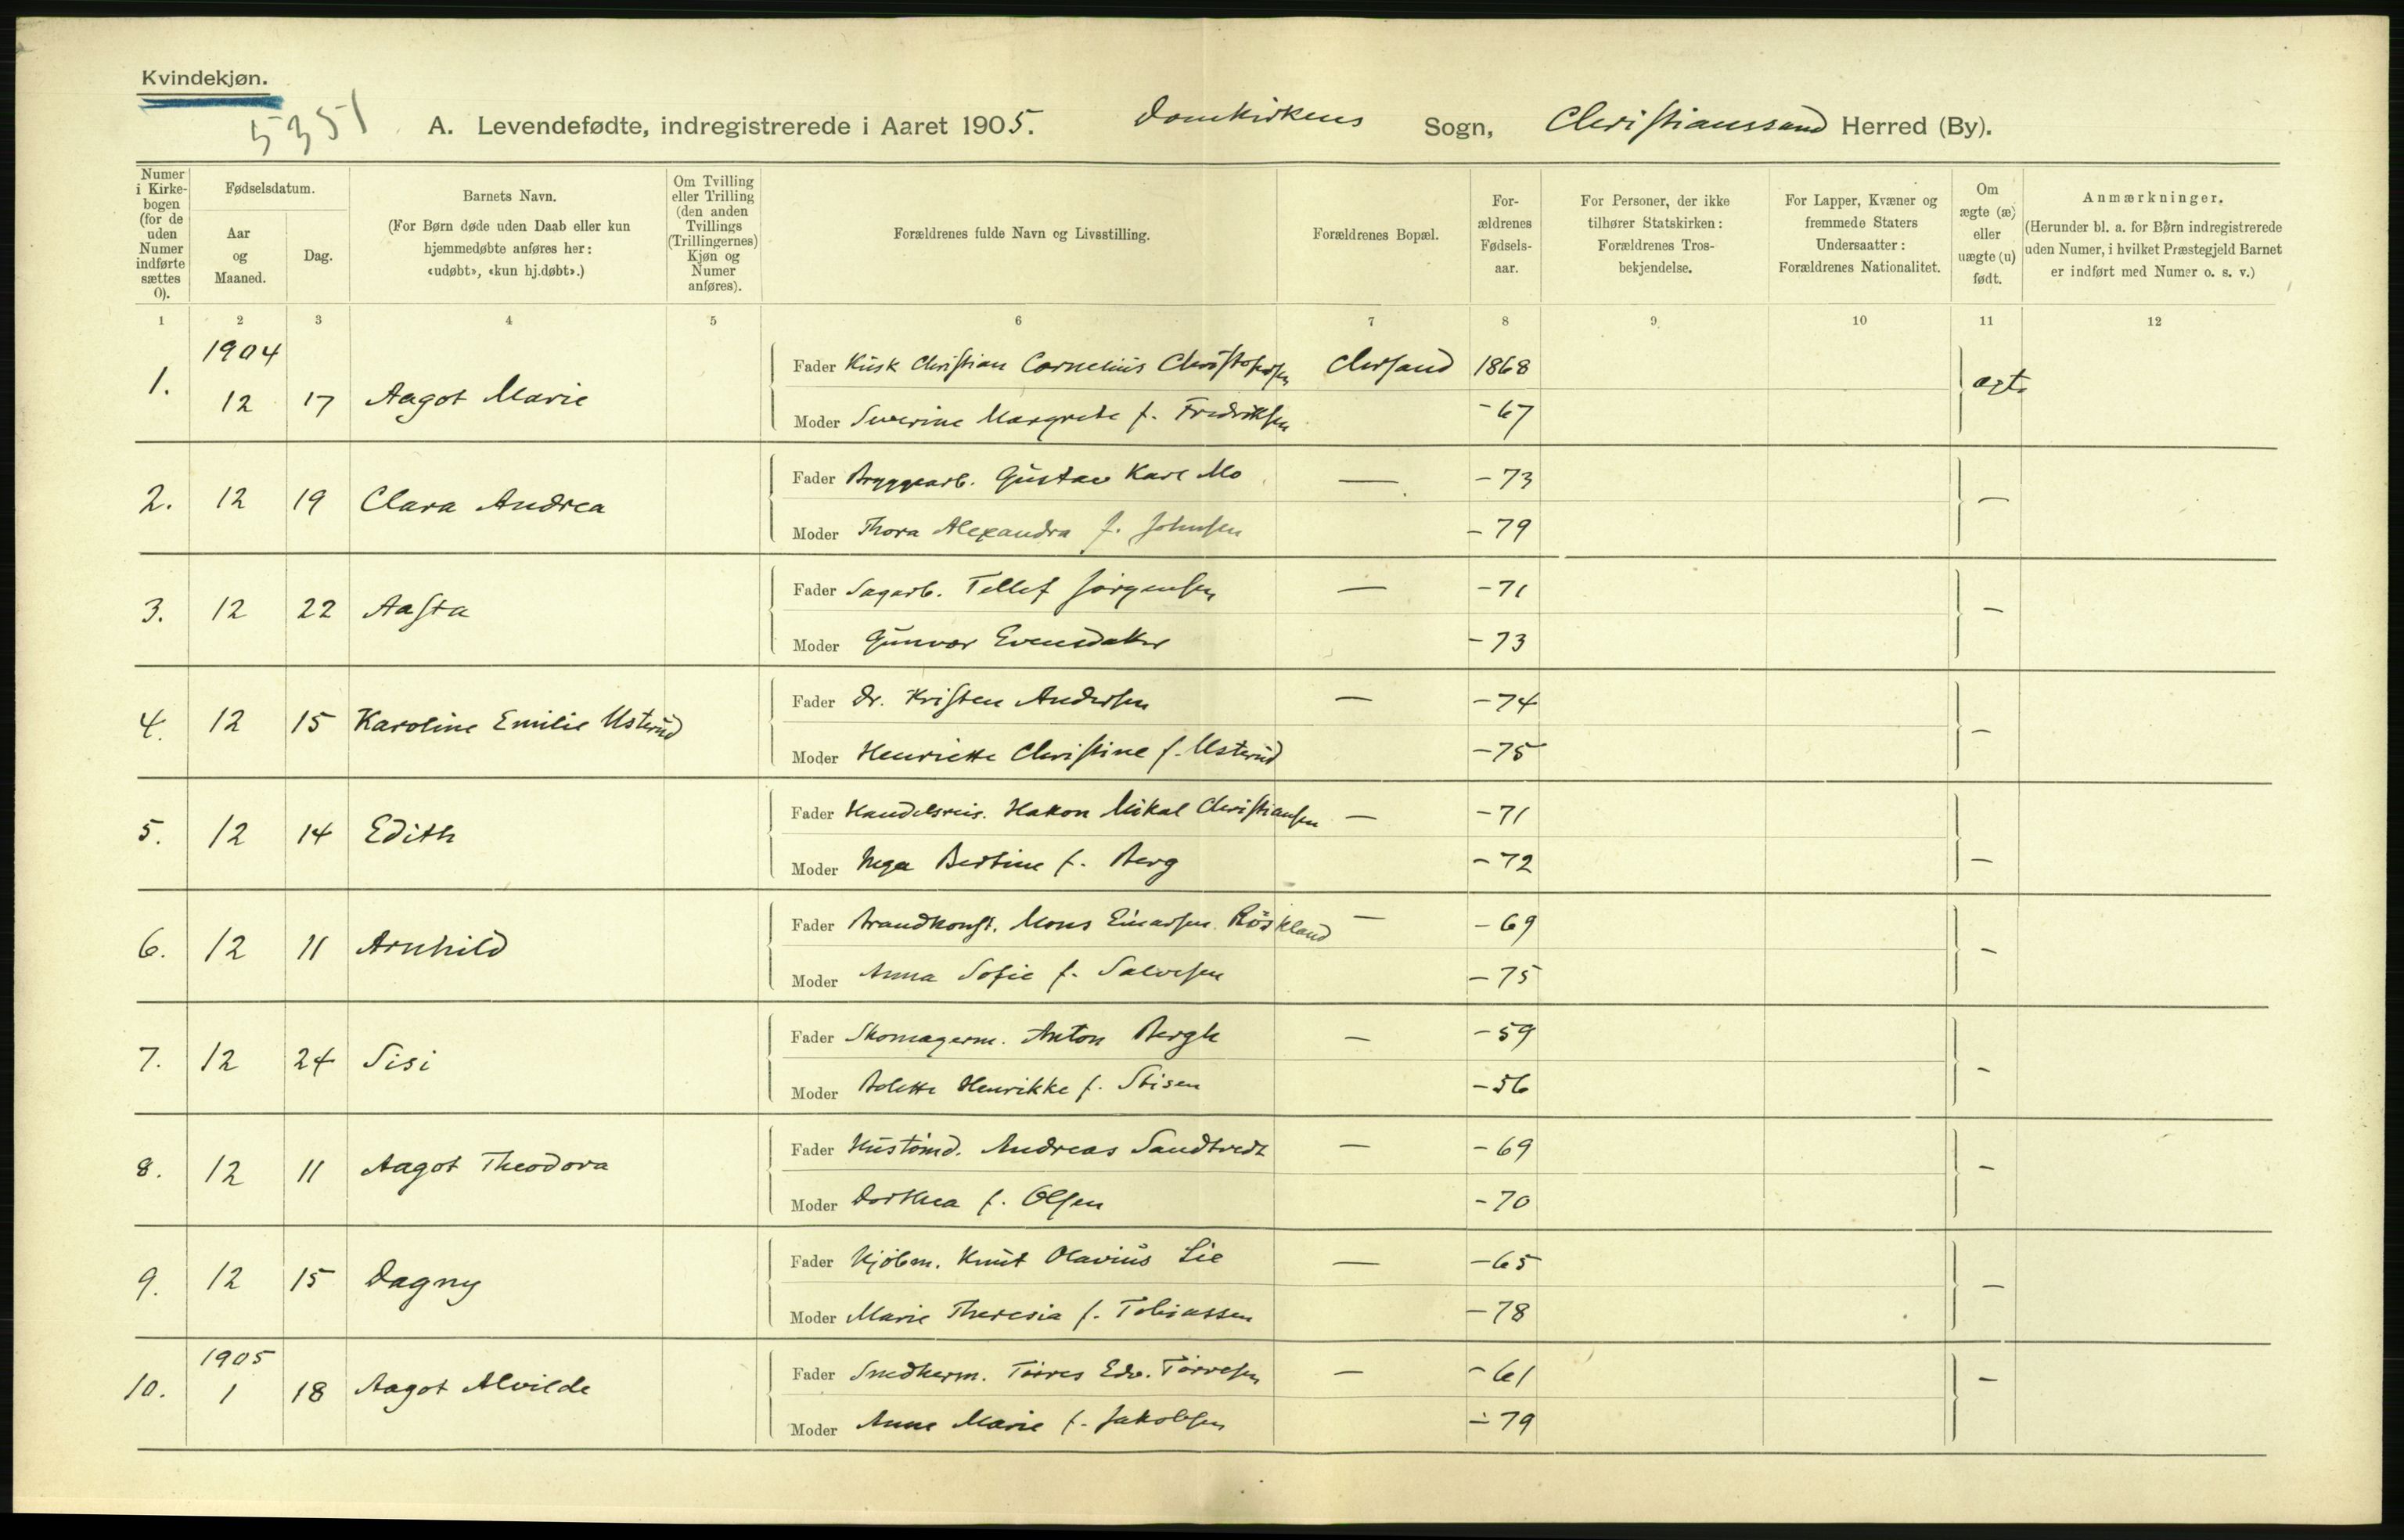 Kvindekjøn.
5351
A. Levendefødte, indregistrerede i Aaret 1905. Domkirkens Sogn, Christianssand Herred (By).
Numer i Kirke-bogen (for de uden Numer indførte sættes 0).
Fødselsdatum.
Aar og Maaned.
Dag.
Barnets Navn.
(For Børn døde uden Daab eller kun
hjemmedøbte anføres her:
«udøbt», «kun hj.døbt».)
Om Tvilling eller Trilling (den anden Tvillings (Trillingernes) Kjøn og Numer anføres).
Forældrenes fulde Navn og Livsstilling.
Forældrenes Bopæl.
For-ældrenes Fødsels-aar.
For Personer, der ikke tilhører Statskirken: Forældrenes Tros-bekjendelse.
For Lapper, Kvæner og fremmede Staters Undersaatter: Forældrenes Nationalitet.
Om ægte (æ) eller uægte (u) født.
Anmærkninger.
(Herunder bl. a. for Børn indregistrerede
uden Numer, i hvilket Præstegjeld Barnet
er indført med Numer o. s. v.)
1 2 3 4 5 6 7 8 9 10 11 12
1904
1. 12 17 Aagot Marie
Fader Kusk Christian Cornelius Christofersen Chrsand 1868 ægte
Moder Severine Margrete f. Fredriksen -67
2. 12 19 Clara Andrea
Fader Bryggearb. Gustav Karl Mo — -73 —
Moder Thora Alexandra f. Johnsen -79
3. 12 22 Aasta
Fader Sagarb. Tellef Jørgensen — -71 —
Moder Gunvor Evensdatter -73
4. 12 15 Karoline Emilie Usterud
Fader Dr. Kristen Andersen — -74 —
Moder Henriette Christine f. Usterud -75
5. 12 14 Edith
Fader Handelsreis. Hakon Mikal Christiansen — -71 —
Moder Inga Bertine f. Berg -72
6. 12 11 Arnhild
Fader Brandkonst. Mons Einarsen Röskland — -69 —
Moder Anna Sofie f. Salvesen -75
7. 12 24 Sisi
Fader Skomagerm. Anton Bergh — -59 —
Moder Bolette Henrikke f. Stisen -56
8. 12 11 Aagot Theodora
Fader Hustømd. Andreas Sandtvedt — -69 —
Moder Dorthea f. Olsen -70
9. 12 15 Dagny
Fader Kjøbm. Knut Olavius Lie — -65 —
Moder Marie Theresia f. Tobiassen -78
1905
10. 1 18 Aagot Alvilde
Fader Smedherm. Törres Edv. Törresen — -61 —
Moder Anne Marie f. Jakobsen -79